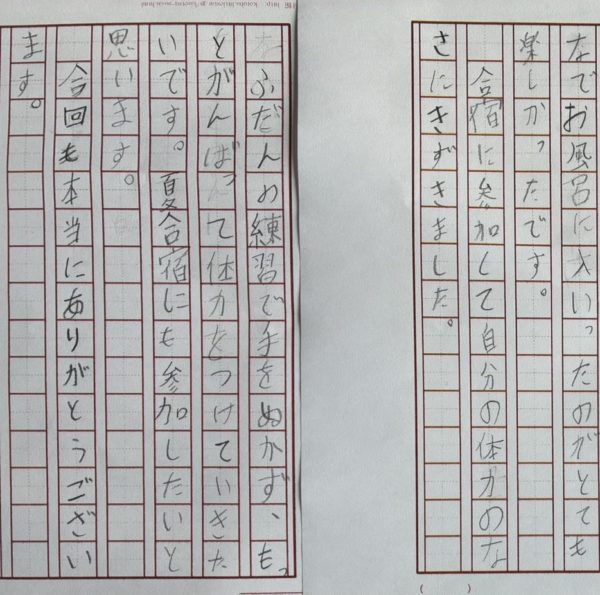 なでお風呂に入いったのがとても
楽しかったです。
合宿に参加して自分の体力のな
さにきずきました。
ふだんの練習で手をぬかず、もっ
とがんばって体力をつけていきた
いです。夏合宿にも参加したいと
思います。
今回も本当にありがとうござい
ます。